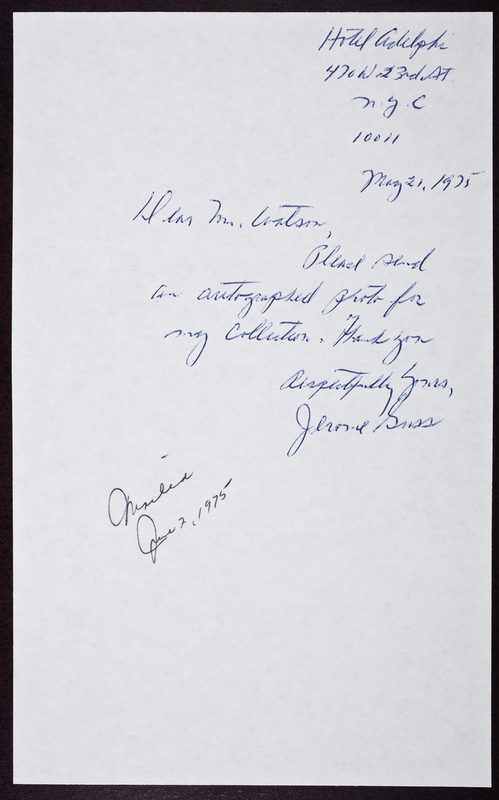 Hotel Adelphi
470 W. 23rd St
N.Y.C
10011
May 21, 1975
Dear Mr. Watson,
Please send
an autographed photo for
my collection. Thank you
Respectfully Yours,
Jerome Buss
Mailed
June 2, 1975